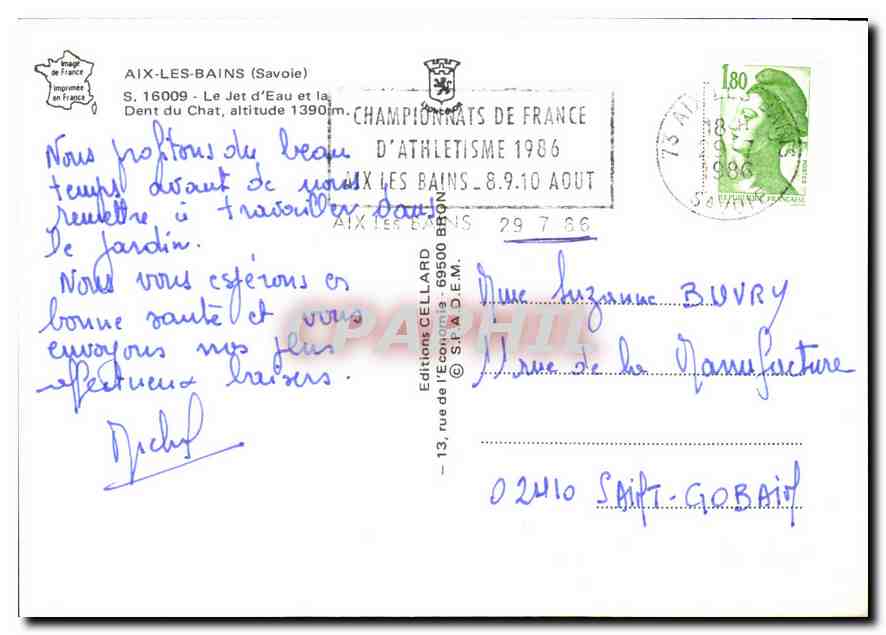 Image
de France
Imprimée
en France
AIX-LES-BAINS (Savoie)
S. 16009 - Le Jet d'Eau et la
Dent du Chat, altitude 1390 m.
CHAMPIONNATS DE FRANCE
D'ATHLETISME 1986
AIX LES BAINS _ 8.9.10 AOUT
AIX LES BAINS 29 7 86
73 AIX-LES-BAINS
18 H
29-7
1986
SAVOIE
1,80
REPUBLIQUE FRANÇAISE
POSTES
Nous profitons du beau
temps avant de nous
remettre à travailler dans
le jardin.
Nous vous espérons en
bonne santé et vous
envoyons nos plus
affectueux baisers.
Michel
Editions CELLARD
– 13, rue de l'Economie - 69500 BRON
© S.P.A.D.E.M.
CPAPHIL
Mme Suzanne BUVRY
11 rue de la Manufacture
02410 SAINT-GOBAIN